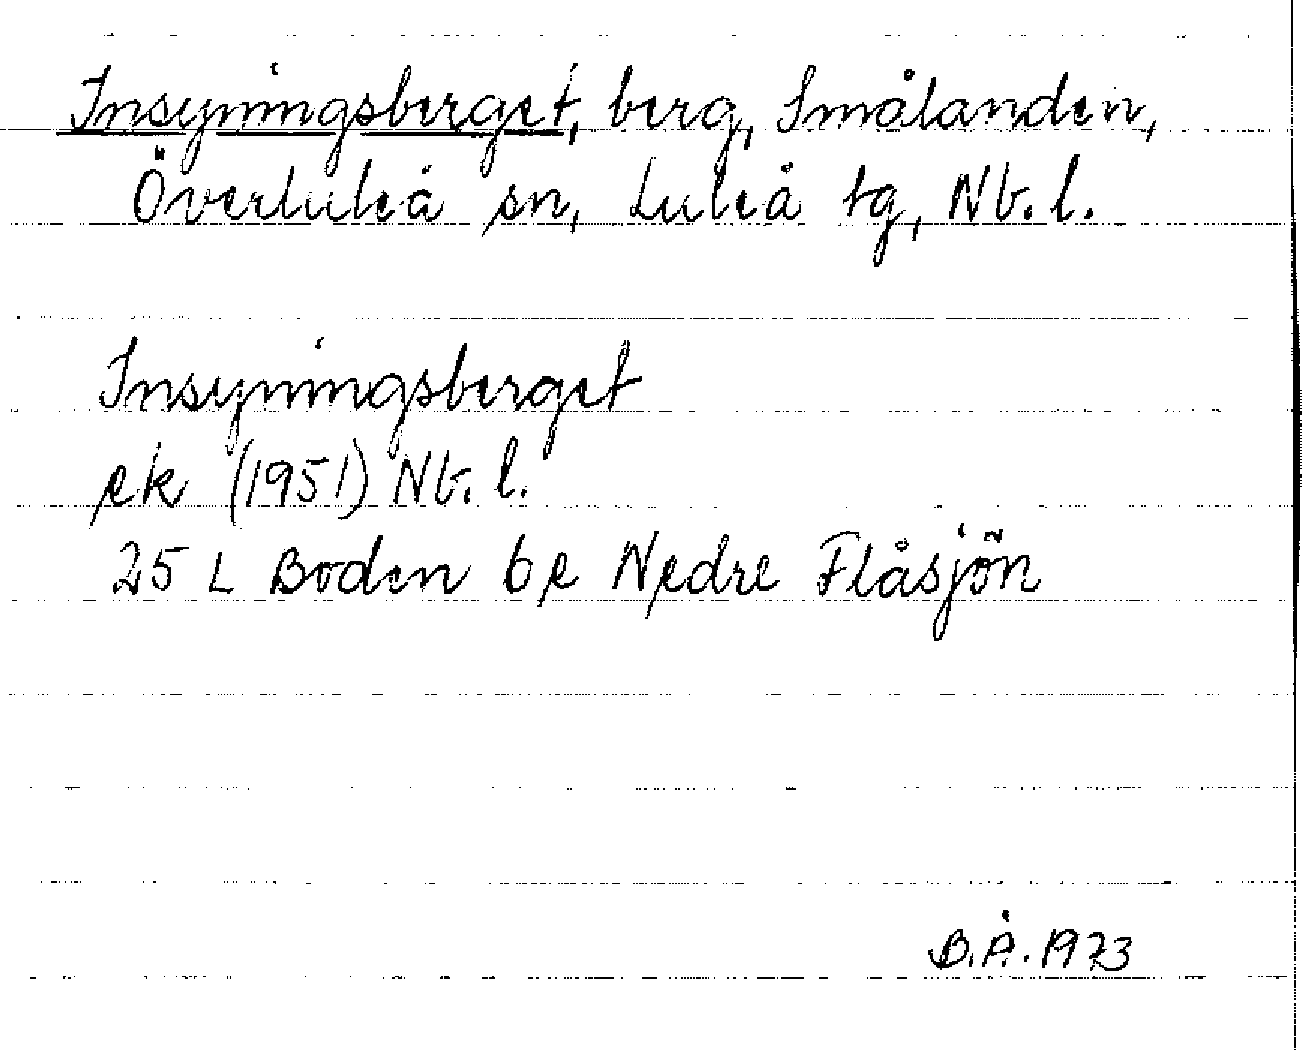 Insyningsberget, berg, Smålanden,
Överluleå sn, Luleå tg, Nb. l.
Insyningsberget
ek (1951) Nb. l.
25 L Boden 6 e Nedre Flåsjön
B.Å. 1973